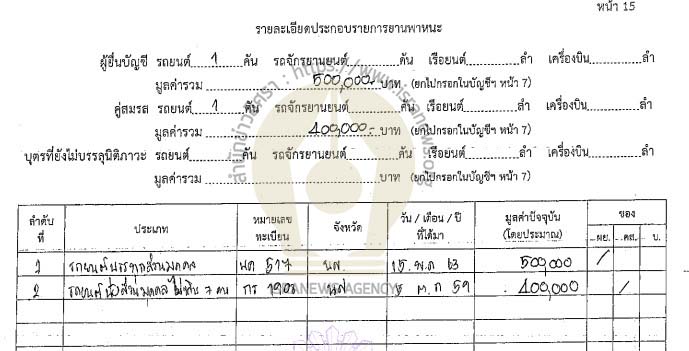 หน้า 15
รายละเอียดประกอบรายการยานพาหนะ
ผู้ยื่นบัญชี รถยนต์ 1 คัน รถจักรยานยนต์ คัน เรือยนต์ ลำ เครื่องบิน ลำ
มูลค่ารวม 500,000.- บาท (ยกไปกรอกในบัญชีฯ หน้า 7)
คู่สมรส รถยนต์ 1 คัน รถจักรยานยนต์ คัน เรือยนต์ ลำ เครื่องบิน ลำ
มูลค่ารวม 400,000.- บาท (ยกไปกรอกในบัญชีฯ หน้า 7)
บุตรที่ยังไม่บรรลุนิติภาวะ รถยนต์ คัน รถจักรยานยนต์ คัน เรือยนต์ ลำ เครื่องบิน ลำ
มูลค่ารวม บาท (ยกไปกรอกในบัญชีฯ หน้า 7)
สำนักข่าวอิศรา : https://www.isranews.org
ลำดับที่ ประเภท หมายเลขทะเบียน จังหวัด วัน / เดือน / ปี ที่ได้มา มูลค่าปัจจุบัน (โดยประมาณ) ของ ผย. คส. บ.
1 รถยนต์บรรทุกส่วนบุคคล 517 15 พ.ค 63 500,000 /
2 รถยนต์นั่งส่วนบุคคลไม่เกิน 7 คน กร ต.ค 59 400,000 /
ISRANEWS AGENCY